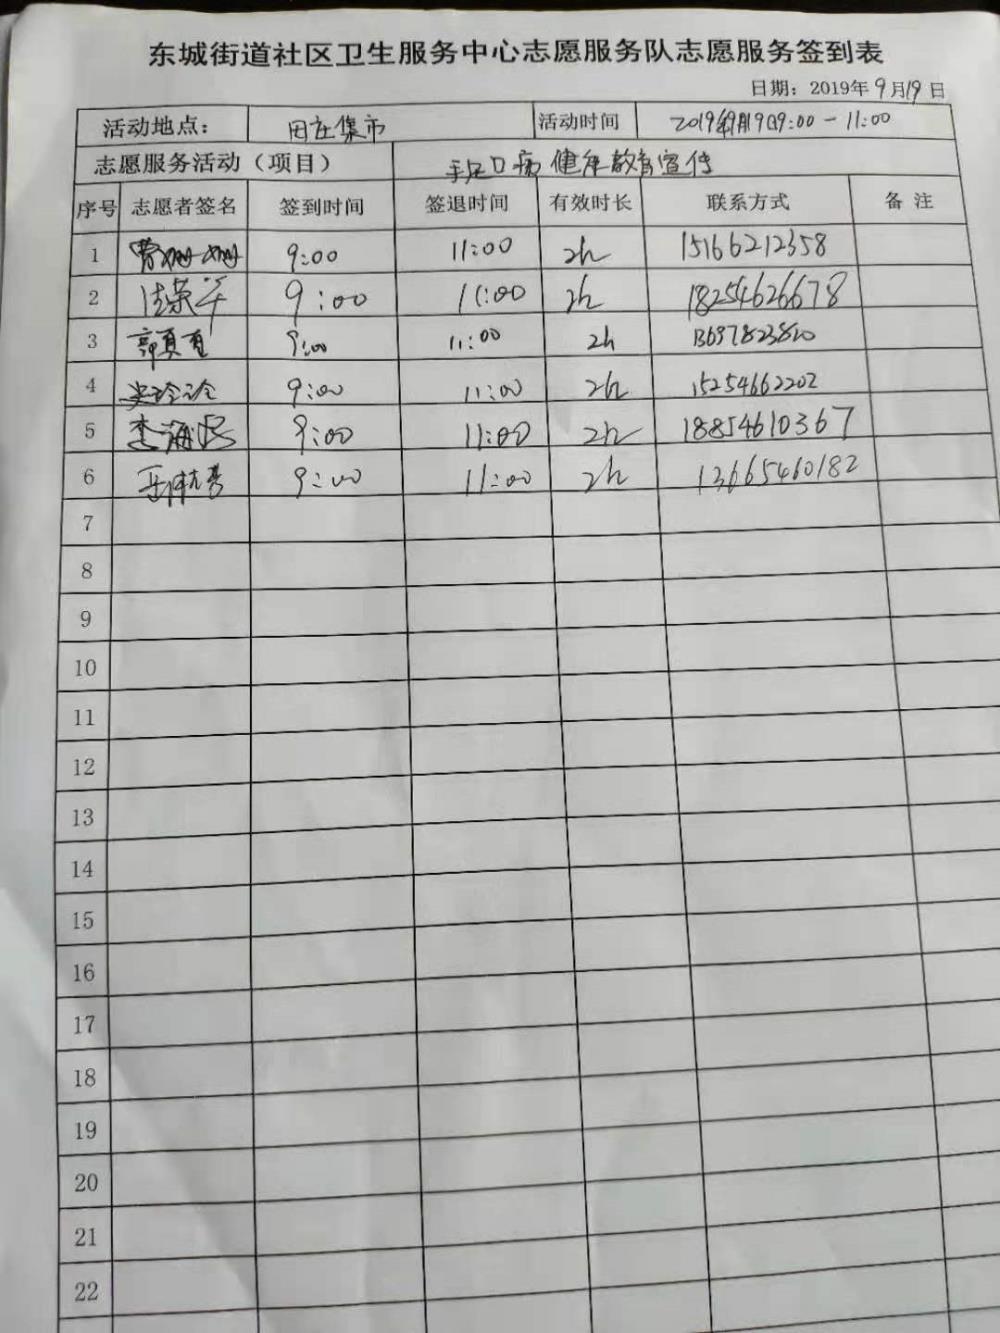 东城街道社区卫生服务中心志愿服务队志愿服务签到表
日期：2019年9月19日
活动地点： 田庄集市 活动时间 2019年9月19日9:00-11:00
志愿服务活动（项目） 手足口病健康教育宣传
序号 志愿者签名 签到时间 签退时间 有效时长 联系方式 备注
1 曹姗姗 9:00 11:00 2h 15166212358
2 9:00 11:00 2h 18254626678
3 9:00 11:00 2h
4 9:00 11:00 2h 15254662202
5 李海 9:00 11:00 2h 18854610367
6 9:00 11:00 2h 13665460182
7
8
9
10
11
12
13
14
15
16
17
18
19
20
21
22